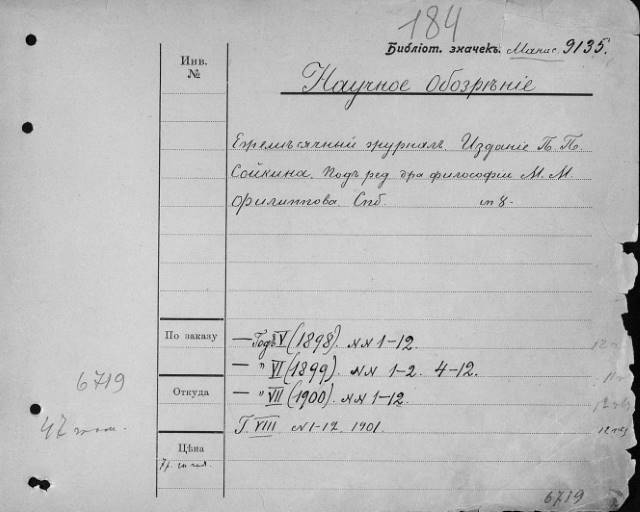 184
Библіот. значекъ. 9135.
Инв.
№
Научное Обозрѣніе
Ежемѣсячный журналъ. Изданіе П. П.
Сойкина. Подъ ред. д-ра философіи М. М.
Филиппова. Спб. in 8.
По заказу
— Годъ V (1898). №№ 1-12.
— " VI (1899). №№ 1-2. 4-12.
6719
Откуда
— " VII (1900). №№ 1-12.
Г. VIII №1-12. 1901.
47
Цѣна
6719